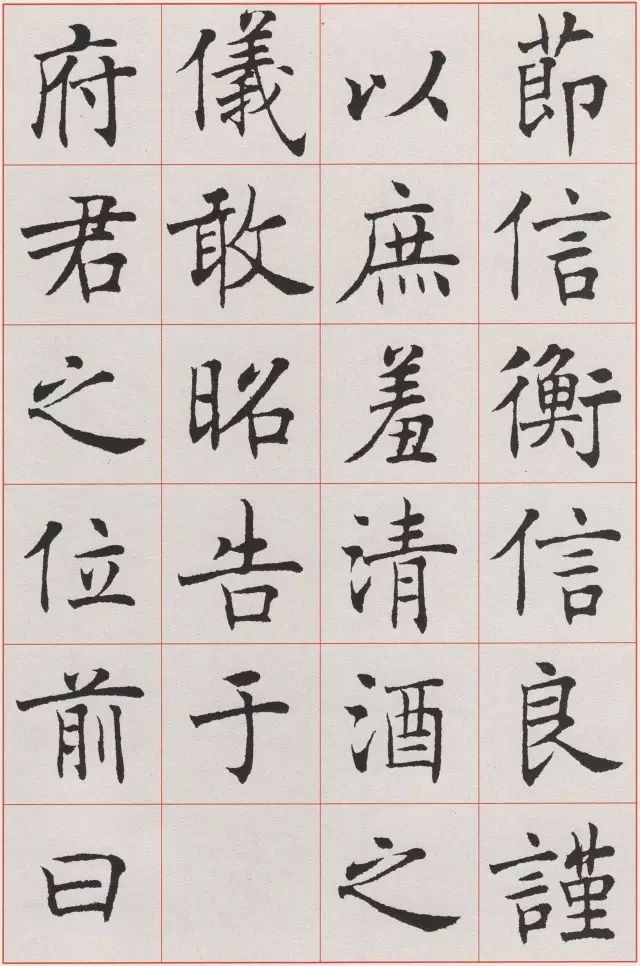 節信衡信良謹
以庶羞清酒之
儀敢昭告于
府君之位前曰